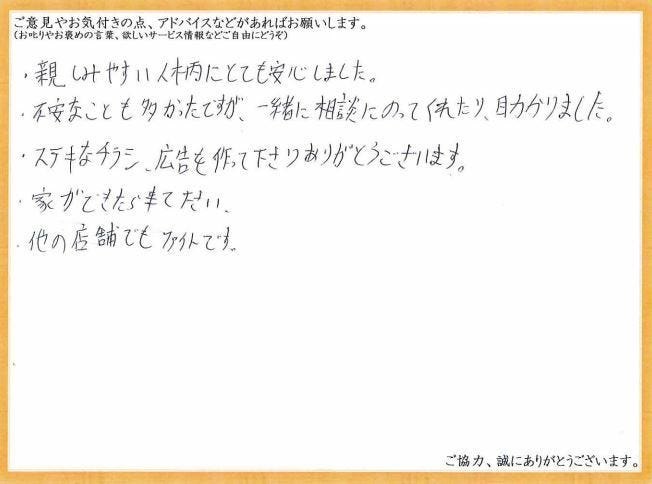 ご意見やお気付きの点、アドバイスなどがあればお願いします。
(お叱りやお褒めの言葉、欲しいサービス情報などご自由にどうぞ)
・親しみやすい人柄にとても安心しました。
・不安なことも多かったですが、一緒に相談にのってくれたり、助かりました。
・ステキなチラシ、広告を作って下さりありがとうございます。
・家ができたら来て下さい、
・他の店舗でもファイトです。
ご協力、誠にありがとうございます。